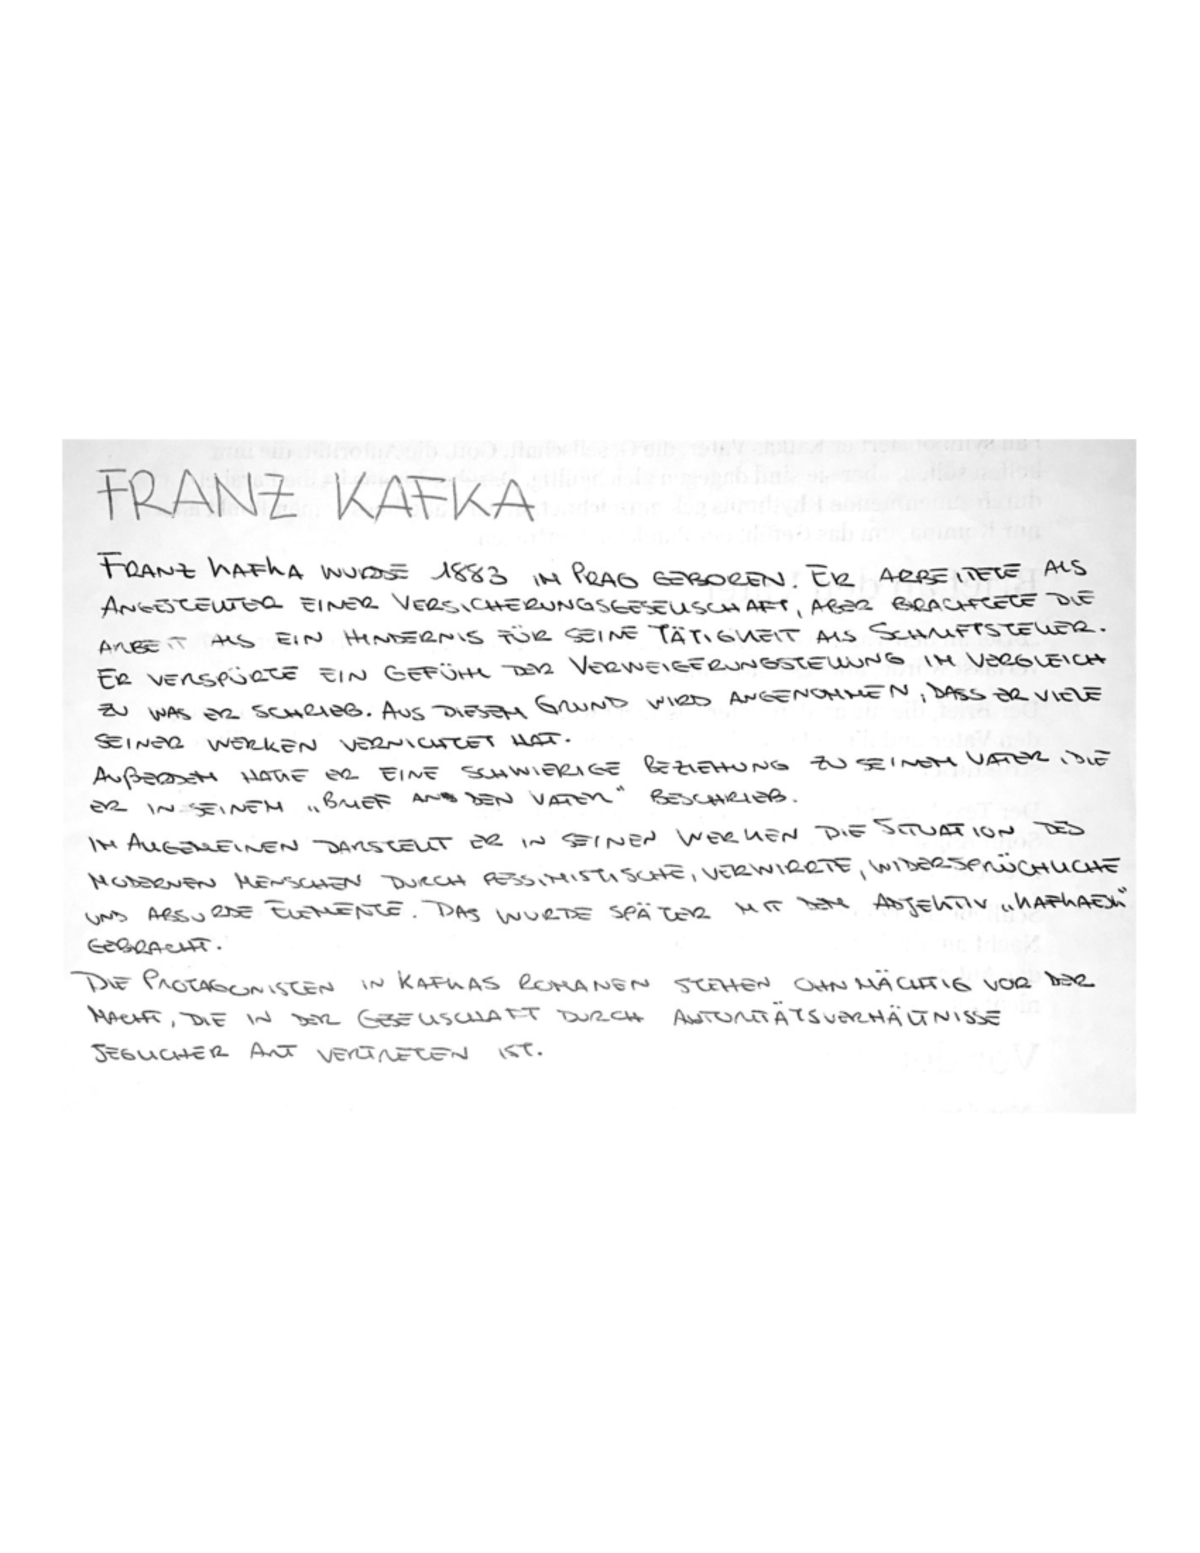 FRANZ KAFKA
FRANZ KAFKA WURDE 1883 IN PRAG GEBOREN. ER ARBEITETE ALS
ANGESTELLTER EINER VERSICHERUNGSGESELLSCHAFT, ABER BRACHTETE DIE
ARBEIT ALS EIN HINDERNIS FÜR SEINE TÄTIGKEIT ALS SCHRIFTSTELLER.
ER VERSPÜRTE EIN GEFÜHL DER VERWEIGERUNGSTELLUNG IM VERGLEICH
ZU WAS ER SCHRIEB. AUS DIESEM GRUND WIRD ANGENOMMEN, DASS ER VIELE
SEINER WERKEN VERNICHTET HAT.
AUßERDEM HATTE ER EINE SCHWIERIGE BEZIEHUNG ZU SEINEM VATER, DIE
ER IN SEINEM „BRIEF AN DEN VATER" BESCHRIEB.
IM ALLGEMEINEN DARSTELLT ER IN SEINEN WERKEN DIE SITUATION DES
MODERNEN MENSCHEN DURCH PESSIMISTISCHE, VERWIRRTE, WIDERSPRÜCHLICHE
UND ABSURDE ELEMENTE. DAS WURDE SPÄTER MIT DEM ADJEKTIV „KAFKAESK"
GEBRACHT.
DIE PROTAGONISTEN IN KAFKAS ROMANEN STEHEN OHNMÄCHTIG VOR DER
MACHT, DIE IN DER GESELLSCHAFT DURCH AUTORITÄTSVERHÄLTNISSE
JEGLICHER ART VERTRETEN IST.